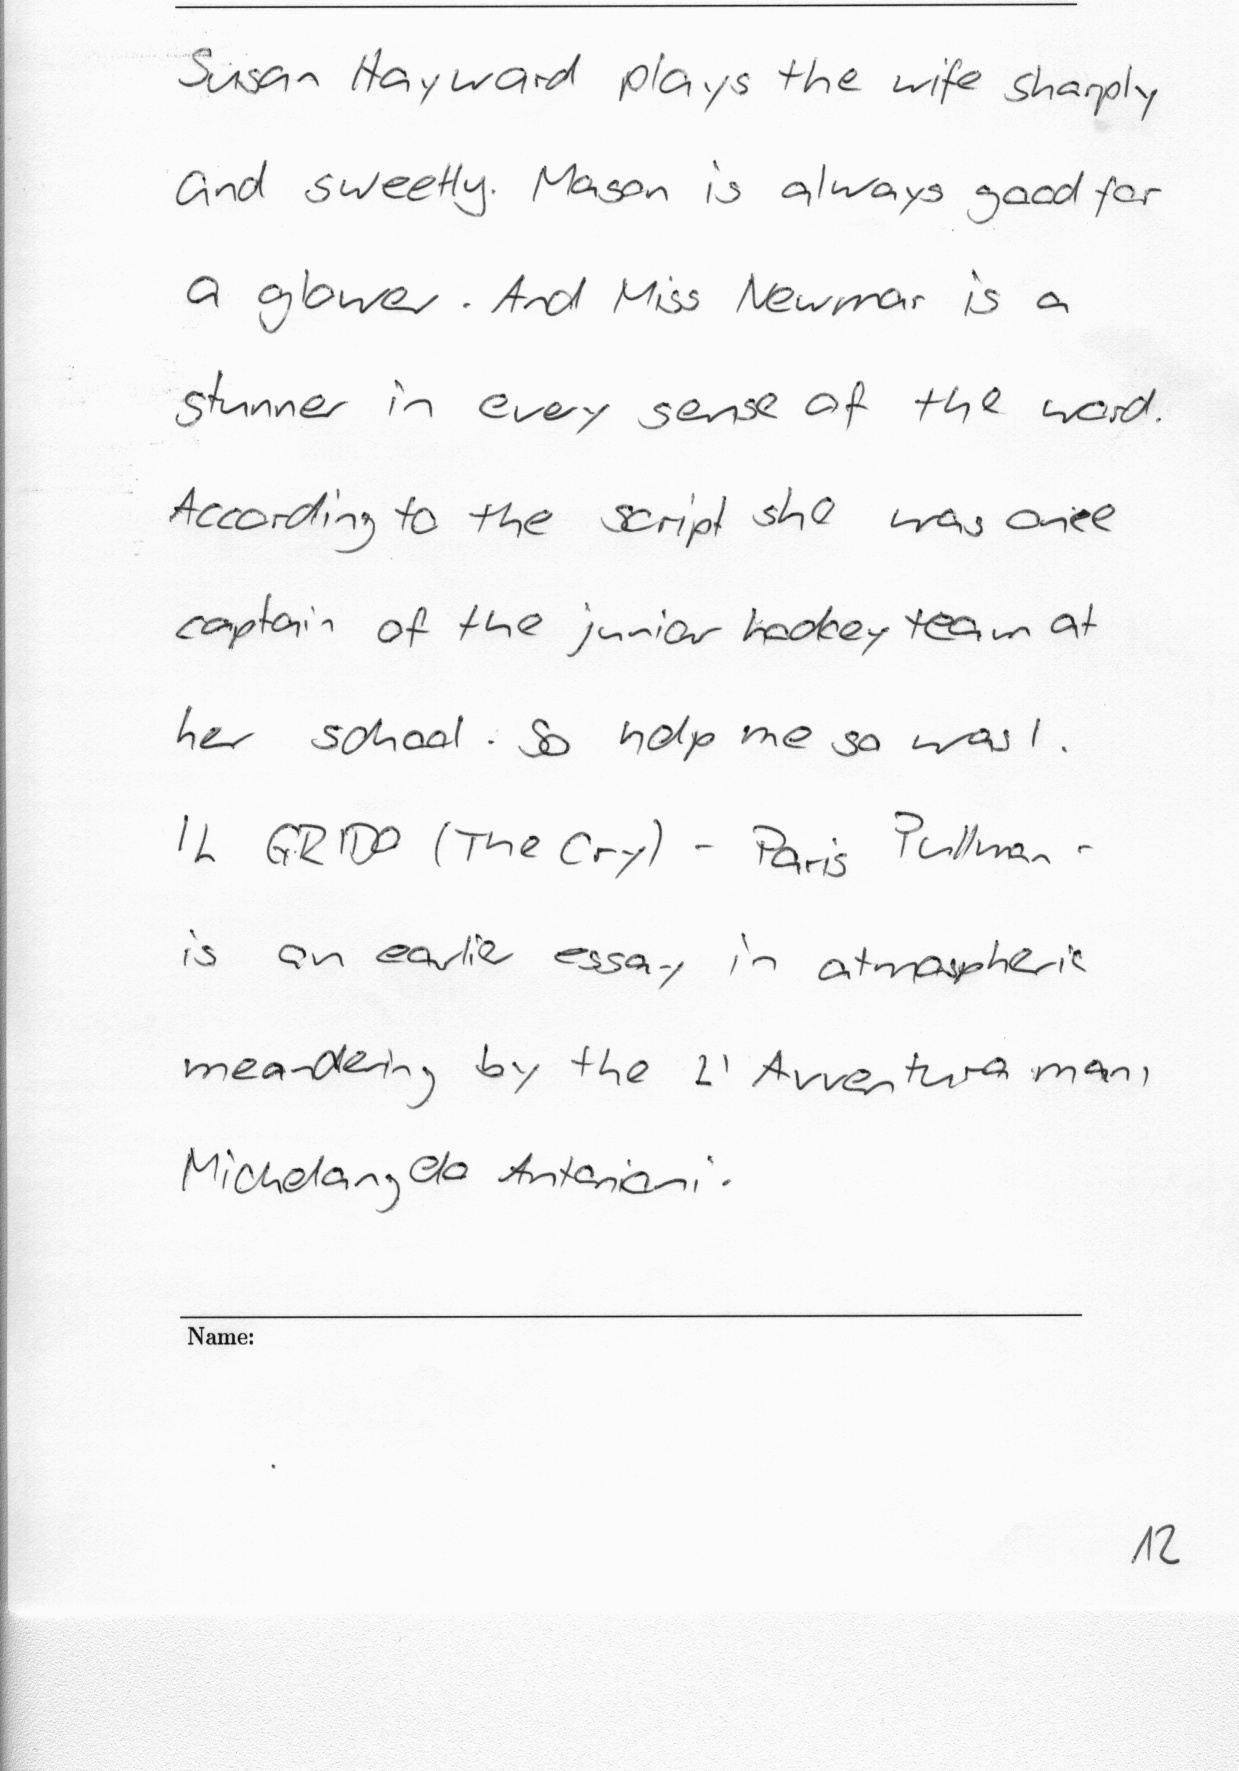 Susan Hayward plays the wife sharply
and sweetly. Mason is always good for
a glower. And Miss Newmar is a
stunner in every sense of the word.
According to the script she was once
captain of the junior hockey team at
her school. So help me so was I.
IL GRIDO (The Cry) - Paris Pullman -
is an earlie essay in atmospheric
meandering by the L'Avventura man,
Michelangelo Antonioni.
Name:
12